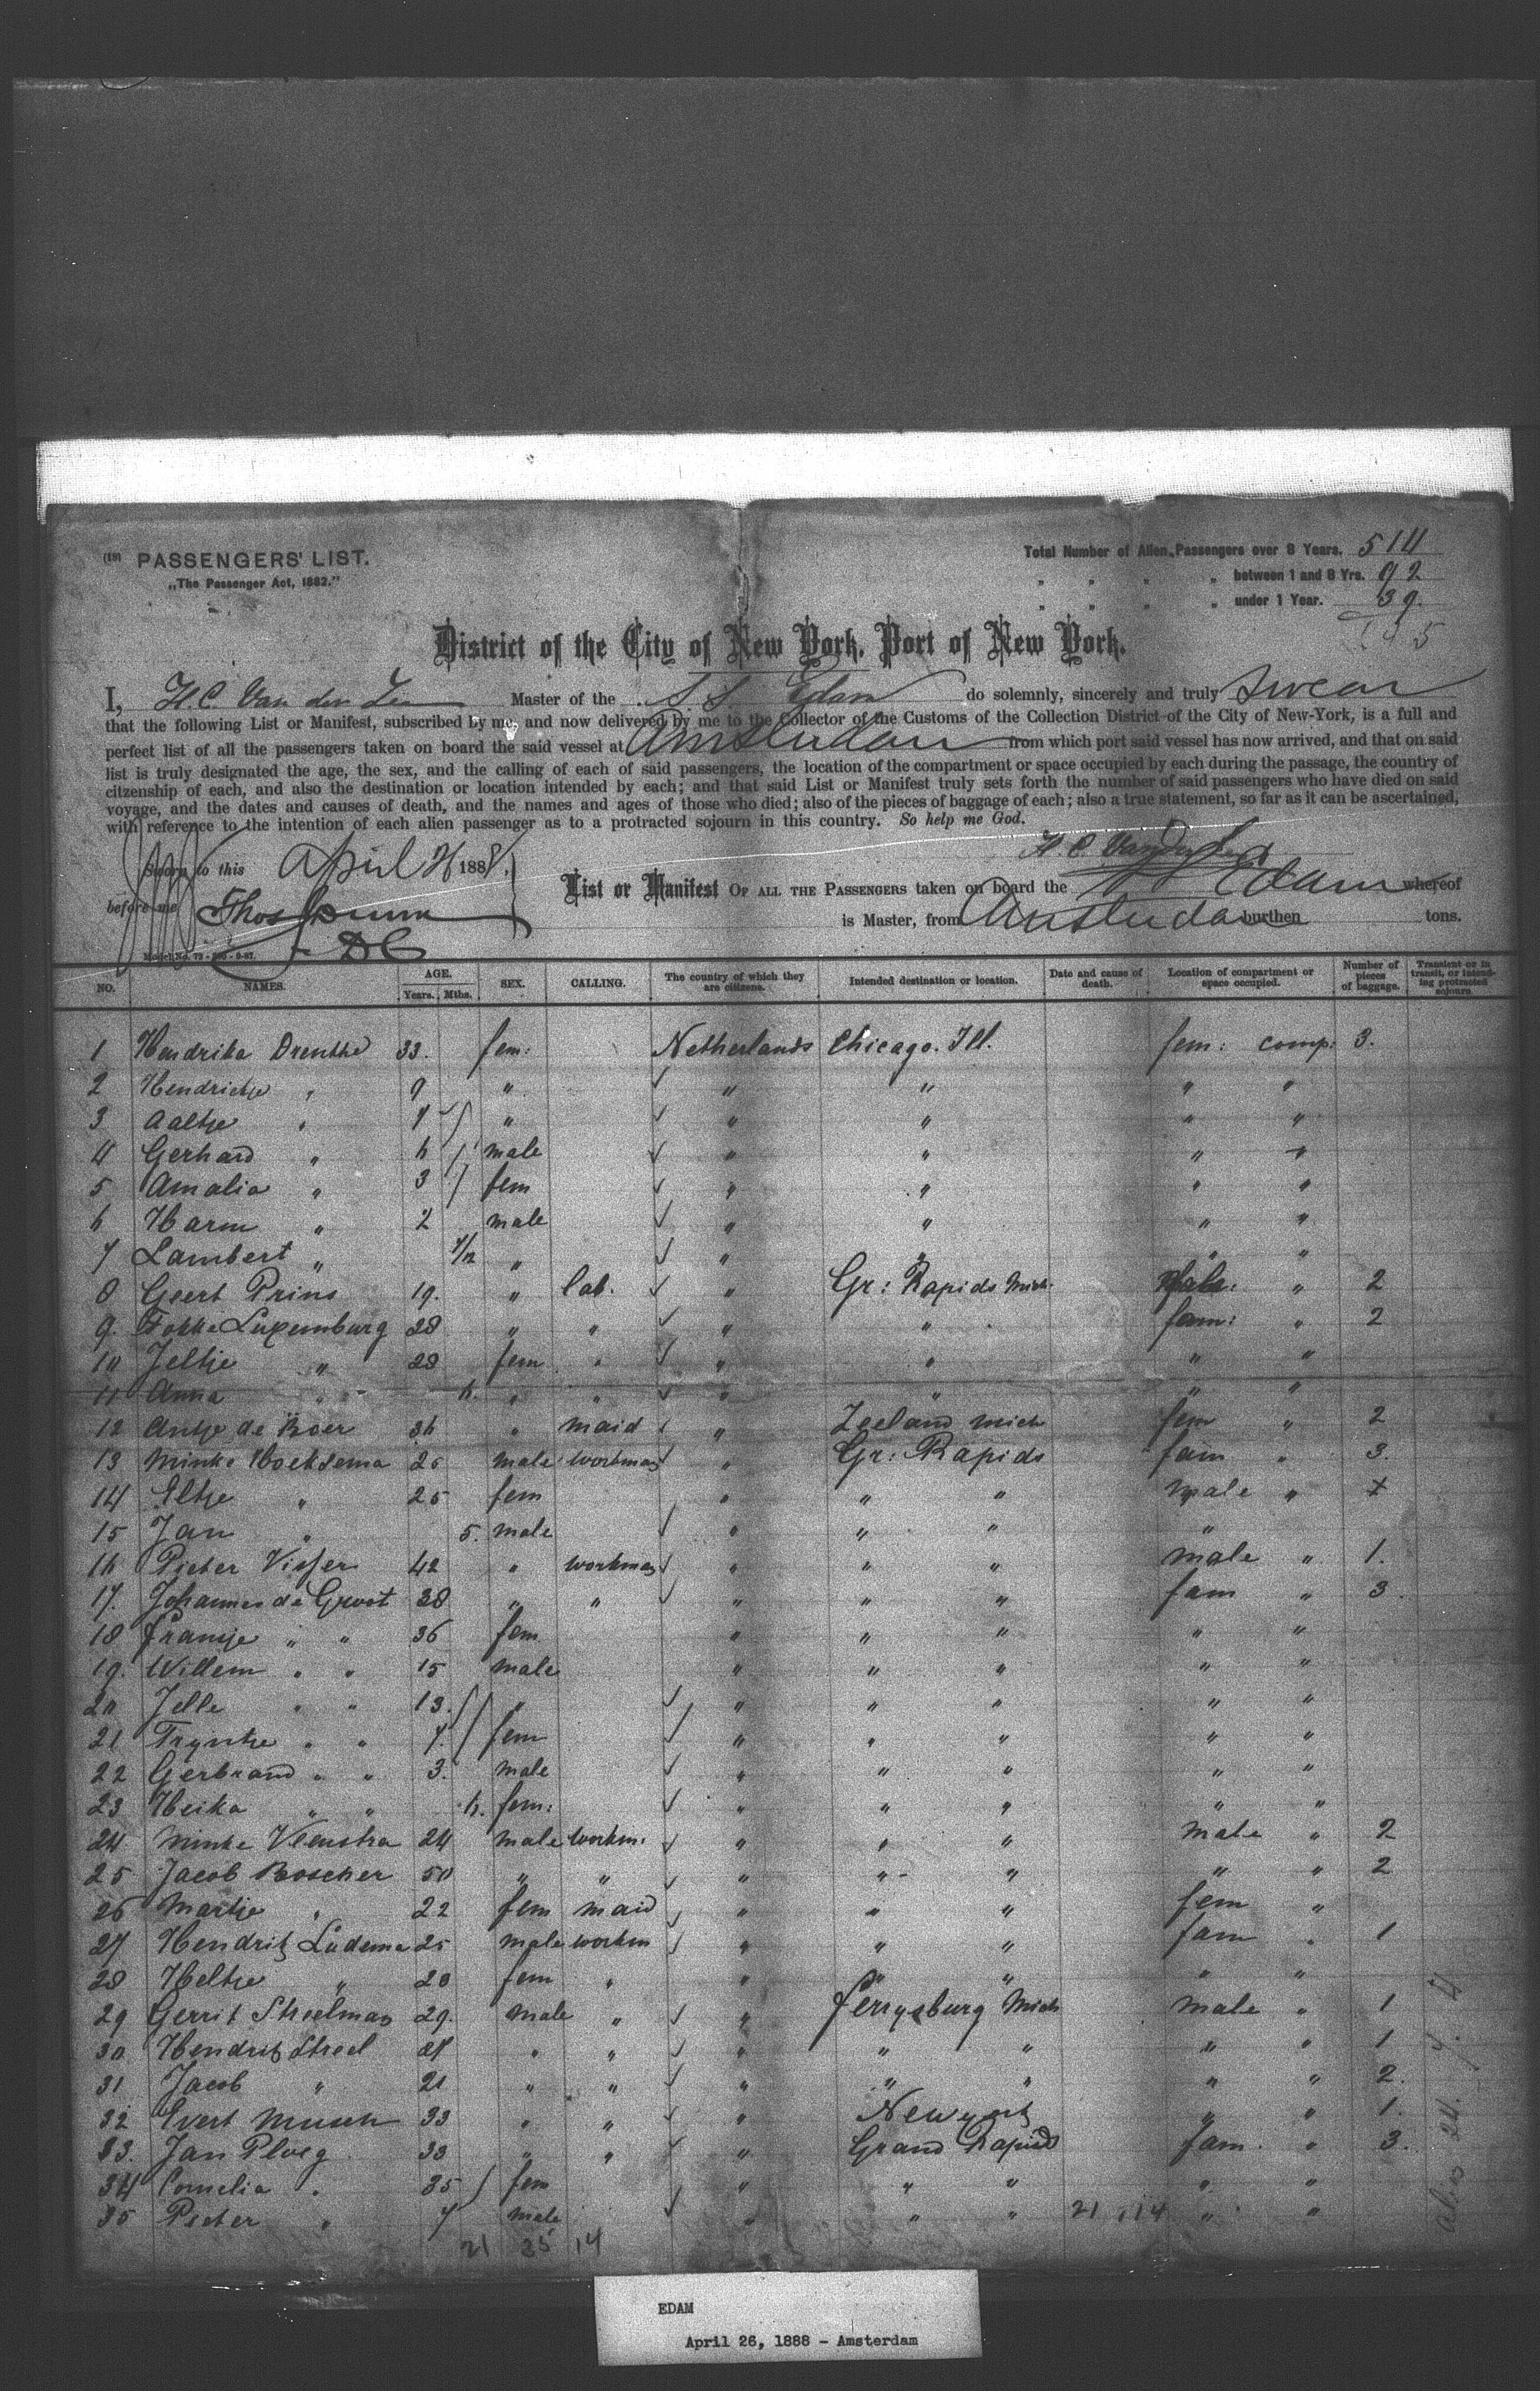 (19) PASSENGERS' LIST.
„The Passenger Act, 1882."
Total Number of Alien Passengers over 8 Years. 514
„ „ „ „ between 1 and 8 Yrs. 92
„ „ „ „ under 1 Year. 39.
District of the City of New York, Port of New York.
I, H.C. Van der Zee Master of the S.S. Edam do solemnly, sincerely and truly swear
that the following List or Manifest, subscribed by me, and now delivered by me to the Collector of the Customs of the Collection District of the City of New-York, is a full and
perfect list of all the passengers taken on board the said vessel at Amsterdam from which port said vessel has now arrived, and that on said
list is truly designated the age, the sex, and the calling of each of said passengers, the location of the compartment or space occupied by each during the passage, the country of
citzenship of each, and also the destination or location intended by each; and that said List or Manifest truly sets forth the number of said passengers who have died on said
voyage, and the dates and causes of death, and the names and ages of those who died; also of the pieces of baggage of each; also a true statement, so far as it can be ascertained,
with reference to the intention of each alien passenger as to a protracted sojourn in this country. So help me God.
H.C. Van der Zee
Sworn to this April 26 1888,
before me Thos
DC
List or Manifest OF ALL THE PASSENGERS taken on board the SS Edam whereof
is Master, from Amsterdam burthen tons.
NO. NAMES. AGE. Years. Mths. SEX. CALLING. The country of which they are citizens. Intended destination or location. Date and cause of death. Location of compartment or space occupied. Number of pieces of baggage. Transient or in transit, or intending protracted sojourn
1 Hendrika Drenthe 33. fem: Netherlands Chicago. Ill. fem: comp: 3.
2 Hendrikje „ 9 „ „ „ „ „
3 Aaltje „ 7 „ „ „ „ „
4 Gerhard „ 6 male „ „ „ „
5 Amalia „ 3 fem „ „ „ „
6 Harm „ 2 male „ „ „ „
7 Lambert „ 7/12 „ „ „ „ „
8 Geert Prins 19. „ lab. „ Gr: Rapids Mich. Male: „ 2
9. Fokke Luxemburg 28 „ „ „ „ fam: „ 2
10 Jeltje „ 28 fem „ „ „ „ „
11 Anna „ 6. „ „ „ „ „ „
12 Antje de Boer 36 „ maid „ Zeeland Mich fem „ 2
13 Minke Hoeksema 25 male workman „ Gr: Rapids fam „ 3.
14 Eltje „ 25 fem „ „ „ male „
15 Jan „ 5. male „ „ „ „
16 Pieter Visser 42 „ workman „ „ „ male „ 1.
17. Johannes de Groot 38 „ „ „ „ „ fam „ 3.
18 Fransje „ „ 36 fem „ „ „ „ „
19. Willem „ „ 15 male „ „ „ „ „
20 Jelle „ „ 13. „ „ „ „ „ „
21 Tryntje „ „ 7. fem „ „ „ „ „
22 Gerbrand „ „ 3. male „ „ „ „ „
23 Heika „ „ 6. fem: „ „ „ „ „
24 Minke Veenstra 24 male workm. „ „ „ male „ 2
25 Jacob Boscher 50 „ „ „ „ „ „ „ 2
26 Martje „ 22 fem maid „ „ „ fem „
27 Hendrik Ludema 25 male workm „ „ „ fam „ 1
28 Heltje „ 20 fem „ „ „ „ „ „
29 Gerrit Streelman 29. male „ „ Ferrysburg Mich male „ 1
30 Hendrik Streel „ „ „ „ „ „ „ 1
31 Jacob „ 21 „ „ „ „ „ „ „ 2.
32 Evert Musch 33 „ „ „ New york „ „ 1.
33. Jan Ploeg 33 „ „ „ Grand Rapids fam. „ 3.
34 Cornelia „ 35 fem „ „ „ „ „
35 Pieter „ 7 male „ „ „ 21 14 „ „
21 35 14
EDAM
April 26, 1888 - Amsterdam